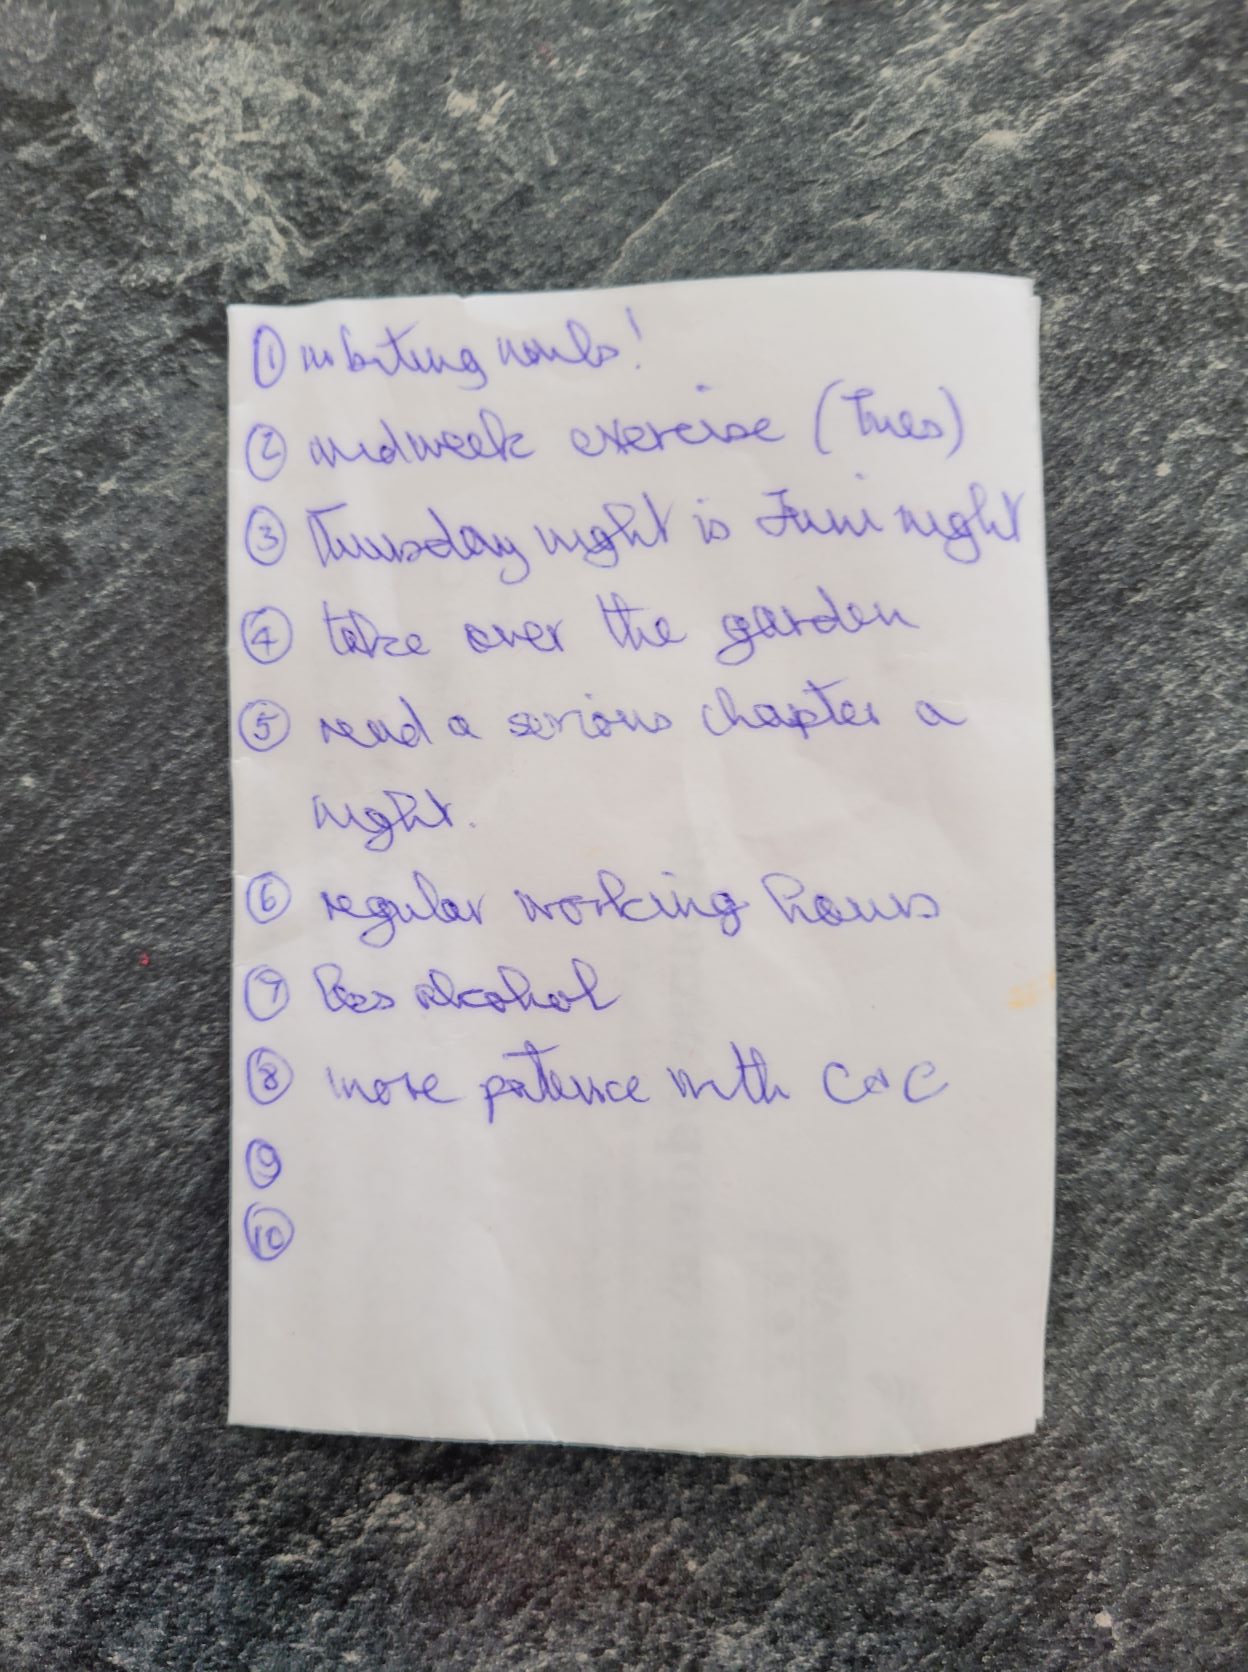 ① no biting nails!
② midweek exercise (Tues)
③ Thursday night is Juni night
④ take over the garden
⑤ read a serious chapter a
night.
⑥ regular working hours
⑦ less alcohol
⑧ more patience with C & C
⑨
⑩